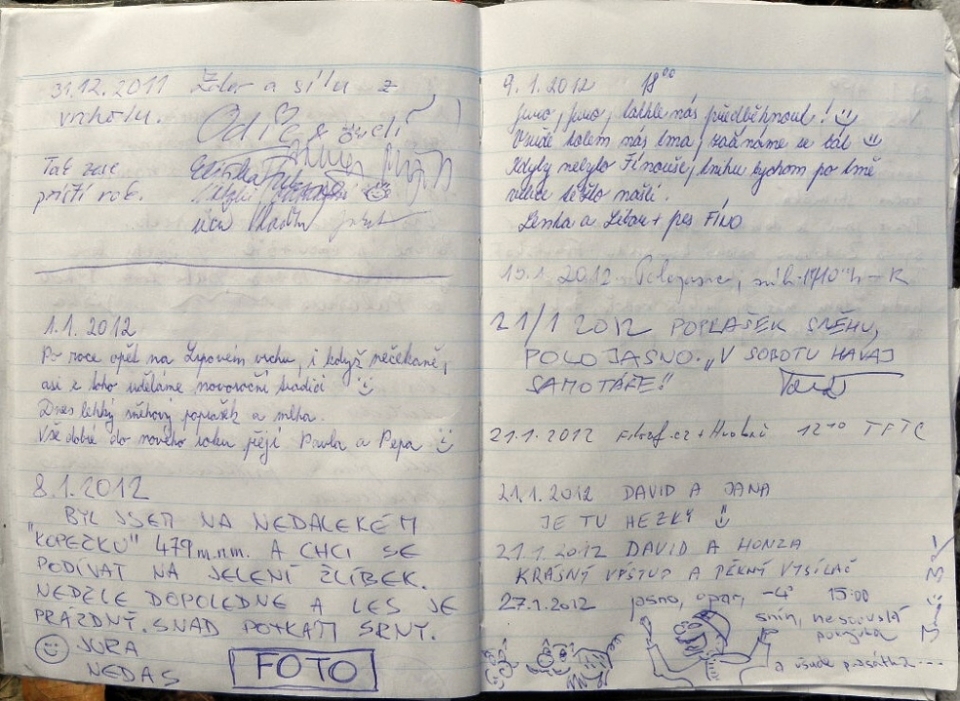 31.12.2011 Zdar a sílu z
vrcholu.
Tak zase
příští rok.
1.1.2012
Po roce opět na Lipovém vrchu, i když nečekaně,
asi z toho uděláme novoroční tradici :-)
Dnes lehký sněhový poprašek a mlha.
Vše dobré do nového roku přejí Pavla a Pepa :-)
8.1.2012
BYL JSEM NA NEDALEKÉM
"KOPEČKU" 479 m.n.m. A CHCI SE
PODÍVAT NA JELENÍ ŽLÍBEK.
NEDĚLE DOPOLEDNE A LES JE
PRÁZDNÝ. SNAD POTKÁM SRNY.
JURA
NEDAS
FOTO
9.1.2012 18⁰⁰
jsme, takhle nás předběhnout! :-)
Všude kolem nás tma, začínáme se bát :-)
Kdyby nebylo Fínouše, knihu bychom po tmě
velice těžko našli.
Lenka a Libor + pes FÍNO
15.1.2012
21/1 2012 POPRAŠEK SNĚHU,
POLOJASNO. „V SOBOTU HAVAJ
SAMOTÁŘE!"
21.1.2012 TFTC
21.1.2012 DAVID A JANA
JE TU HEZKY :-)
21.1.2012 DAVID A HONZA
KRÁSNÝ VÝSTUP A PĚKNÝ VYSÍLAČ
27.1.2012 jasno, opar, -4° 15:00
a všude